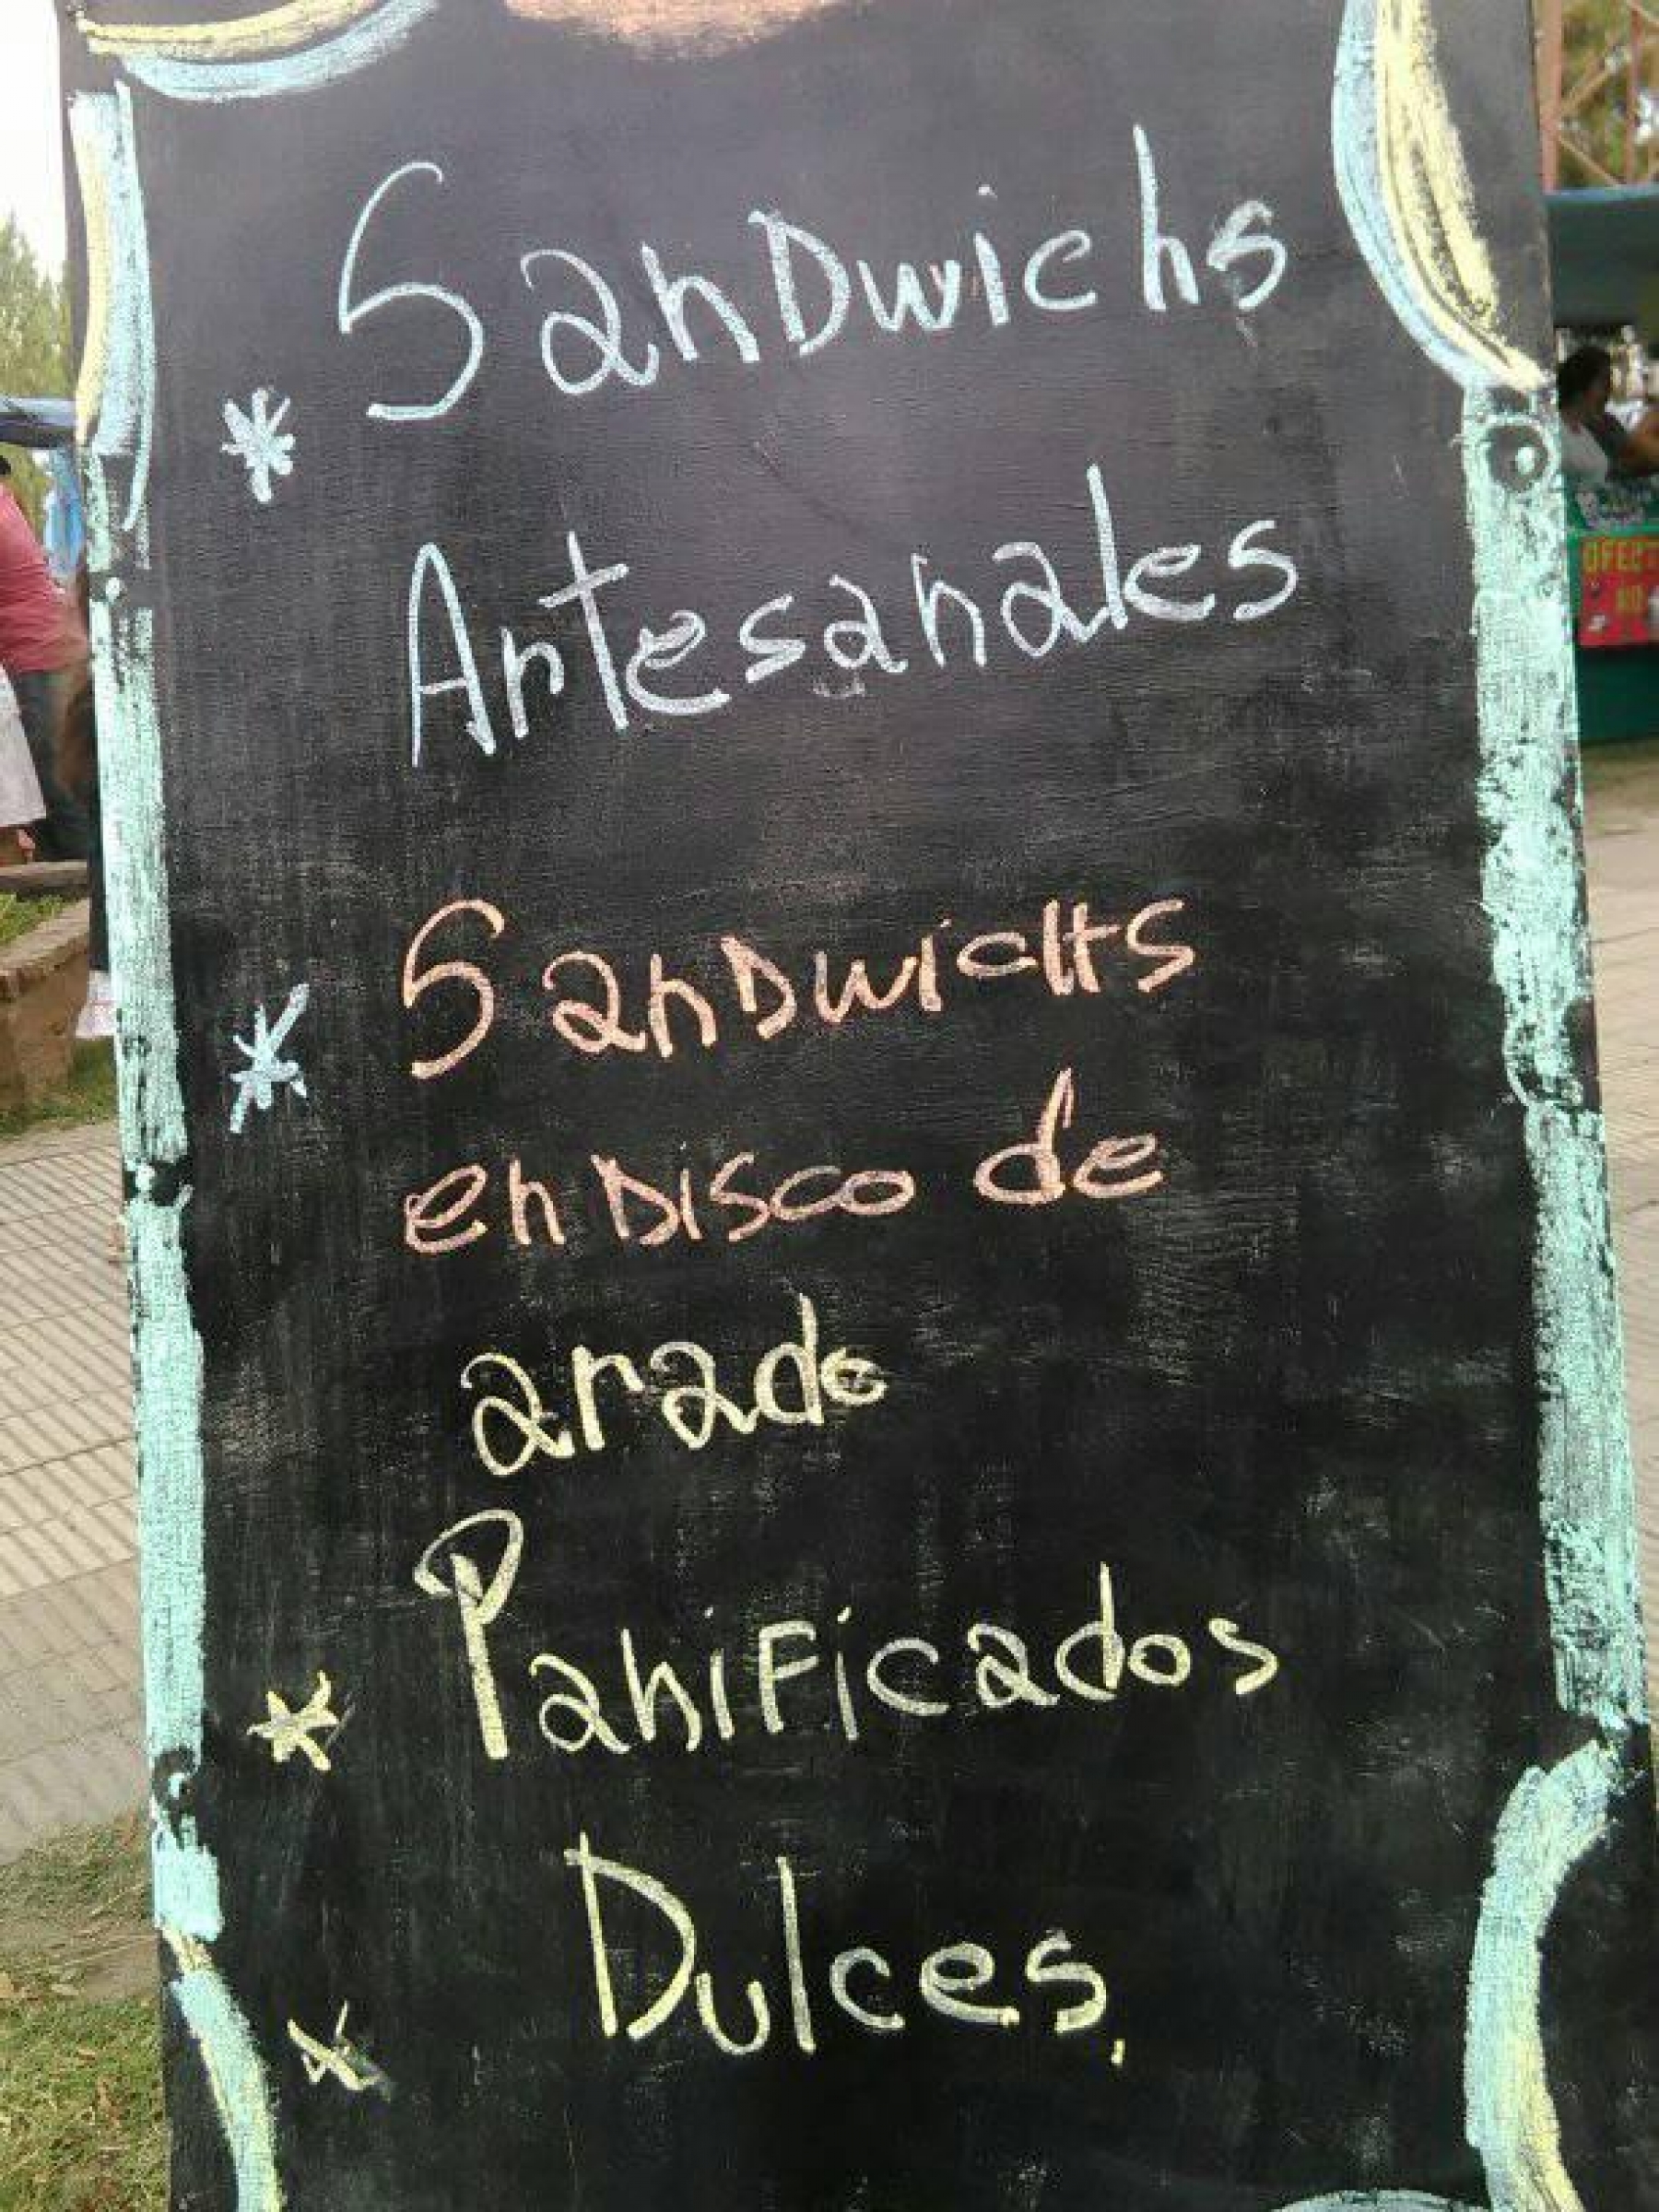 * SanDwichs
Artesanales
* SanDwicHs
en Disco de
arado
* PaniFicados
* Dulces.